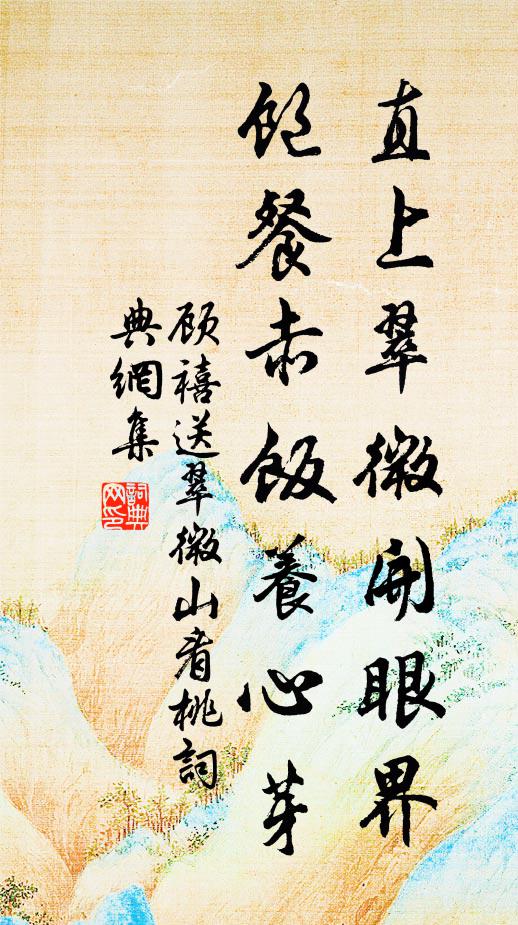 直上翠微開眼界
飽餐赤飯養心芽
顾禧送翠微山看桃詞
典網集
詞典
网印